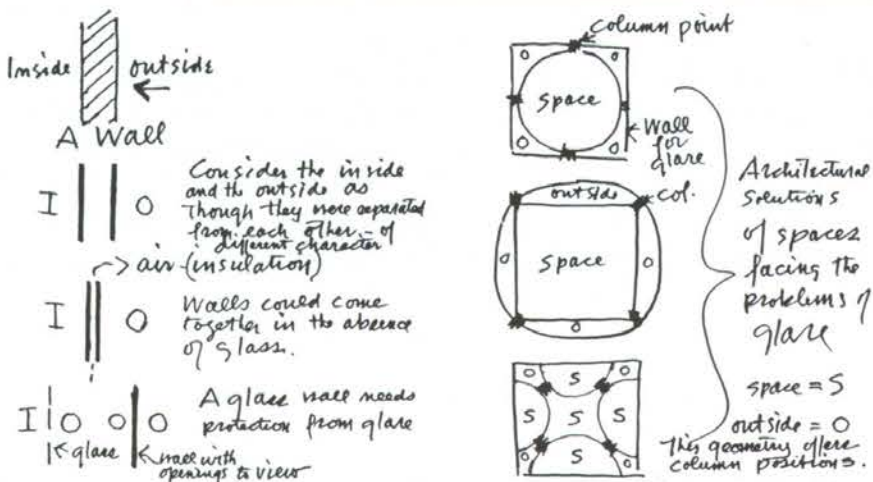 Inside
outside
A Wall
I
O
Consider the inside
and the outside as
though they were separated
from each other - of
different character
air (insulation)
I
O
Walls could come
together in the absence
of glass.
I
O
O
O
A glass wall needs
protection from glare
glare
wall with
openings to view
column point
O
O
space
O
O
Wall
for
glare
outside
col.
O
space
O
O
O
S
O
S
S
S
O
S
O
Architectural
solutions
of spaces
facing the
problems of
glare
space = S
outside = O
This geometry offers
column positions.